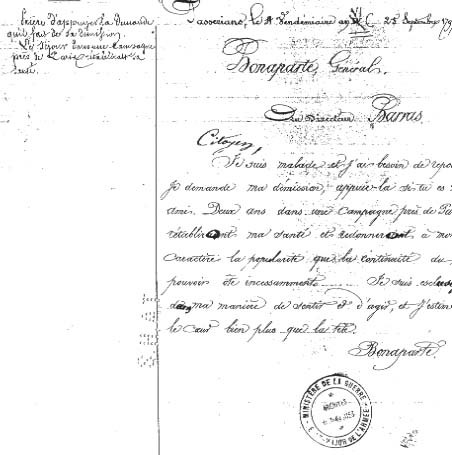 Prière d'appuyer la demande
qu'il fait de sa démission.
Un séjour dans une campagne
près de Paris rétablirait sa
santé.
Passeriano, le 4 Vendémiaire an VI (25 Septembre 179
Bonaparte, Général,
Au Directeur Barras.
Citoyen,
Je suis malade et j'ai besoin de repo
Je demande ma démission, appuie-la si tu es
ami. Deux ans dans une campagne près de Pa
rétabliront ma santé et redonneront à mon
caractère la popularité que la continuité du
pouvoir ôte incessamment. Je suis esclave
dans ma manière de sentir et d'agir, et j'estim
le cœur bien plus que la tête.
Bonaparte.
S.H.A.T.
MINISTÈRE DE LA GUERRE
ARCHIVES
ÉTAT-MAJOR DE L'ARMÉE